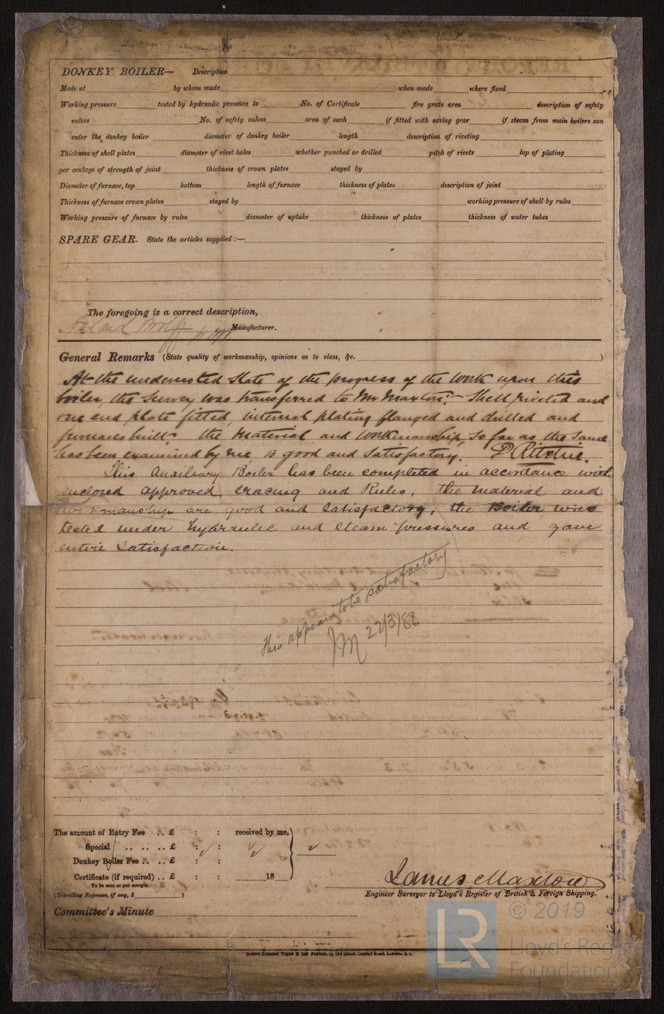 DONKEY BOILER— Description
Made at by whom made when made where fixed
Working pressure tested by hydraulic pressure to No. of Certificate fire grate area description of safety
valves No. of safety valves area of each if fitted with easing gear if steam from main boilers can
enter the donkey boiler diameter of donkey boiler length description of riveting
Thickness of shell plates diameter of rivet holes whether punched or drilled pitch of rivets lap of plating
per centage of strength of joint thickness of crown plates stayed by
Diameter of furnace, top bottom length of furnace thickness of plates description of joint
Thickness of furnace crown plates stayed by working pressure of shell by rules
Working pressure of furnace by rules diameter of uptake thickness of plates thickness of water tubes
SPARE GEAR. State the articles supplied:—
The foregoing is a correct description,
Harland & Wolff Manufacturer.
General Remarks (State quality of workmanship, opinions as to class, &c. )
At the undernoted State of the progress of the work upon this
boiler, the Survey was transferred to Mr Maxton:- Shell riveted and
one end plate fitted, internal plating flanged and drilled and
furnaces built- the Material and Workmanship, so far as the same
has been examined by me, is good and Satisfactory. P. Ritchie.
This Auxiliary Boiler has been completed in accordance with
inclosed approved tracing and Rules, the material and
workmanship are good and Satisfactory, the Boiler was
tested under hydraulic and steam pressures and gave
entire Satisfaction.
This appears to be satisfactory
22/3/88
The amount of Entry Fee . . £ : : received by me,
Special . . . . . £ : :
Donkey Boiler Fee . . . £ : :
Certificate (if required) . . £ : : 18
To be sent as per margin.
(Travelling Expenses, if any, £ )
James Maxton
Engineer Surveyor to Lloyd's Register of British & Foreign Shipping.
Committee's Minute
© 2019
LR
Lloyd's Register
Foundation